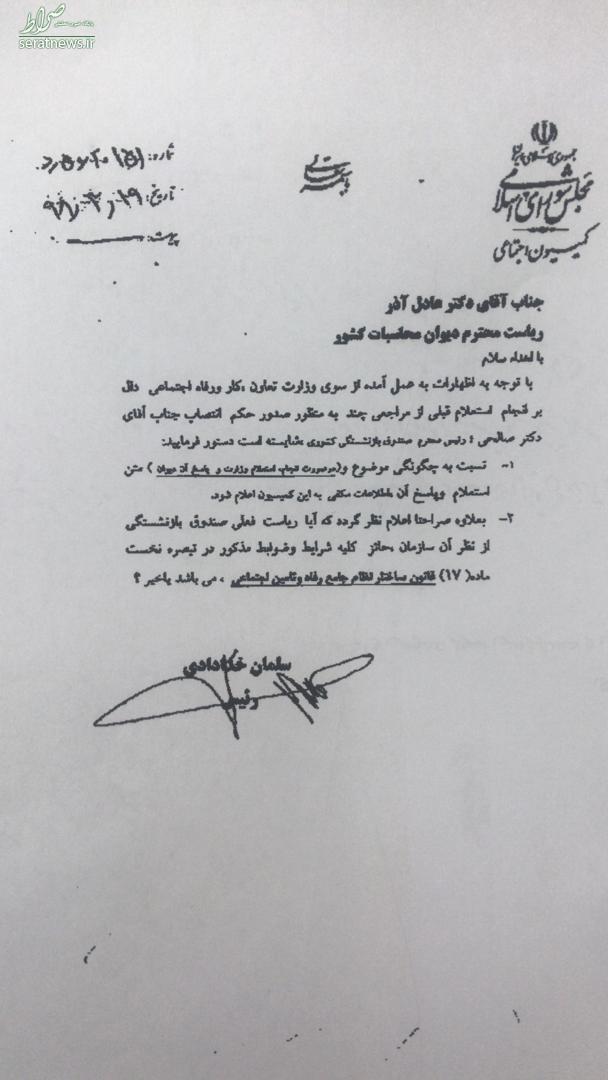 صراط
seratnews.ir
جمهوری اسلامی ایران
مجلس شورای اسلامی
کمیسیون اجتماعی
بسمه تعالی
شماره:
تاریخ: ۹۸/۳/۱۹
پیوست:
جناب آقای دکتر عادل آذر
ریاست محترم دیوان محاسبات کشور
با اهداء سلام
با توجه به اظهارات به عمل آمده از سوی وزارت تعاون ،کار ورفاه اجتماعی دال
بر انجام استعلام قبلی از مراجعی چند به منظور صدور حکم انتصاب جناب آقای
دکتر صالحی ؛ رئیس محترم صندوق بازنشستگی کشوری ،شایسته است دستور فرمایید:
۱- نسبت به چگونگی موضوع و(درصورت انجام استعلام وزارت و پاسخ آن دیوان ) متن
استعلام وپاسخ آن ،اطلاعات مکفی به این کمیسیون اعلام شود.
۲- بعلاوه صراحتا اعلام نظر گردد که آیا ریاست فعلی صندوق بازنشستگی
از نظر آن سازمان ،حائز کلیه شرایط وضوابط مذکور در تبصره نخست
ماده( ۱۷) قانون ساختار نظام جامع رفاه وتامین اجتماعی ، می باشد یاخیر ؟
سلمان خدادادی
رئیس